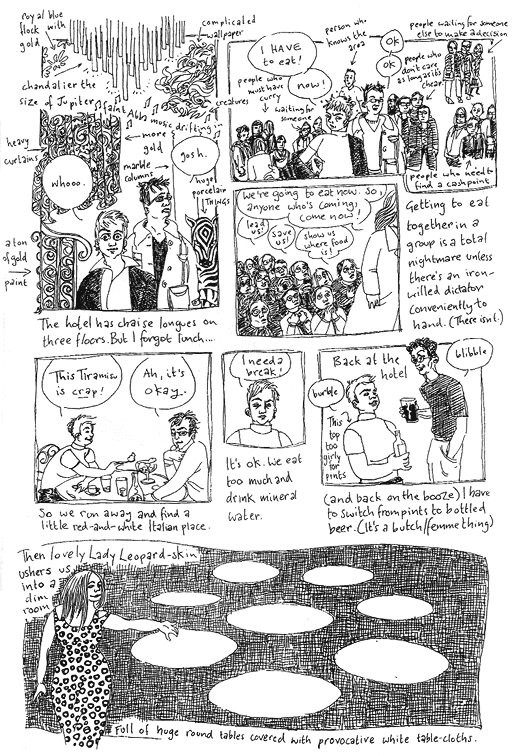 royal blue
flock with
gold
complicated
wallpaper
chandalier the
size of Jupiter
faint Abba
music drifting
heavy
curtains
more
gold
marble
columns
gosh.
huge
porcelain
THINGS
whooo.
a ton
of gold
paint
The hotel has chaise longues on
three floors. But I forgot lunch....
I HAVE
to eat!
now!
person who
knows the
area
ok
ok
people waiting for someone
else to make a decision
people who
don't care
as long as it's
cheap
people who
must have
curry
creatures
waiting for
someone
people who need to
find a cashpoint
We're going to eat now. So,
anyone who's coming,
come now!
lead
us!
save
us!
show us
where food
is!
Getting to eat
together in a
group is a total
nightmare unless
there's an iron-
willed dictator
conveniently to
hand. (There isn't.)
This Tiramisu
is crap!
Ah, it's
okay..
So we run away and find a
little red-and-white Italian place.
I need a
break!
It's ok. We eat
too much and
drink mineral
water.
Back at the
hotel
blibble
burble
This
top
too
girly
for
pints
(and back on the booze) I have
to switch from pints to bottled
beer. (It's a butch/femme thing)
Then lovely Lady Leopard-skin
ushers us
into a
dim
room
Full of huge round tables covered with provocative white table-cloths.